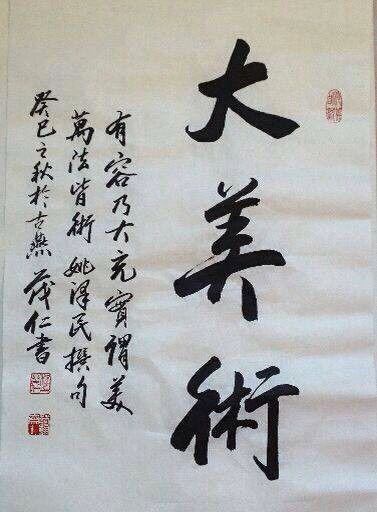 大美術
有容乃大充實謂美
萬法皆術姚澤民撰句
癸巳之秋於古燕茂仁書